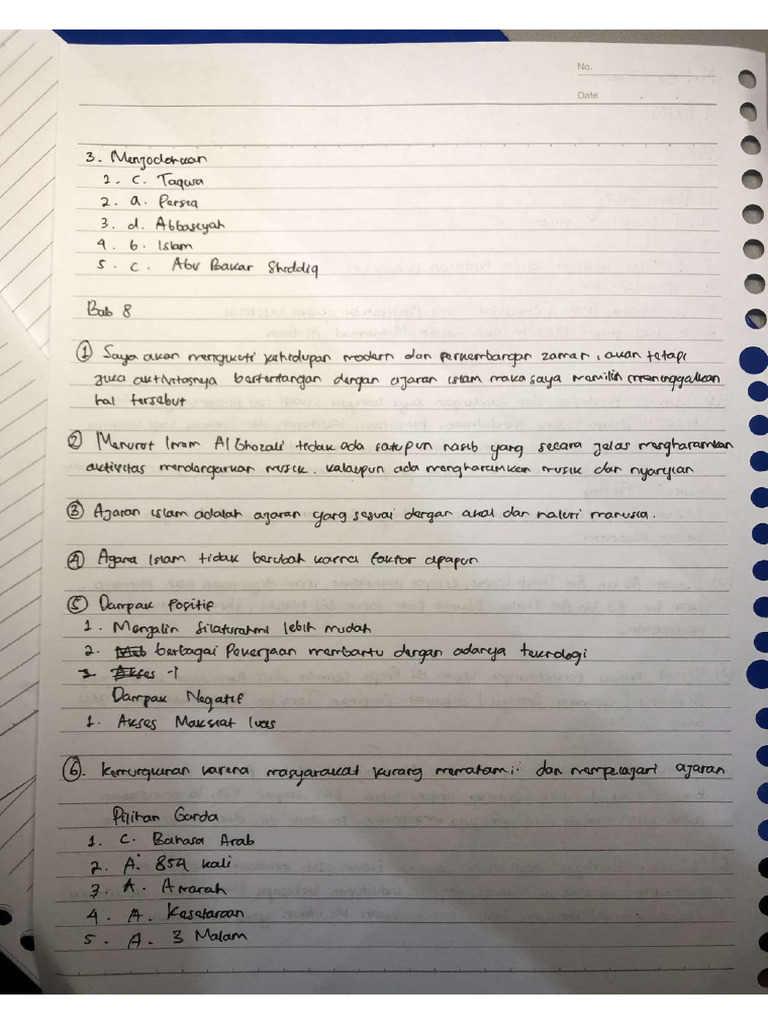 No.
Date
3. Menjodohkan
1. C. Taqwa
2. a. Persia
3. d. Abbasiyah
4. b. Islam
5. c. Abu Bakar Shiddiq
Bab 8
① Saya akan mengikuti kehidupan modern dan perkembangan zaman, akan tetapi
jika aktivitasnya bertentangan dengan ajaran islam maka saya memilih meninggalkan
hal tersebut
② Menurut Imam Al Ghozali tidak ada satupun nasib yang secara jelas mengharamkan
aktivitas mendengarkan musik. kalaupun ada mengharamkan musik dan nyanyian
③ Ajaran islam adalah ajaran yang sesuai dengan akal dan naluri manusia.
④ Agama Islam tidak berubah karna faktor apapun
⑤ Dampak Positif
1. Menjalin Silaturahmi lebih mudah
2. berbagai Pekerjaan membantu dengan adanya teknologi
Dampak Negatif
1. Akses Maksiat luas
⑥. kemungkinan karena masyarakat kurang memahami dan mempelajari ajaran
Pilihan Ganda
1. C. Bahasa Arab
2. A. 854 kali
3. A. Amarah
4. A. Kesetaraan
5. A. 3 Malam